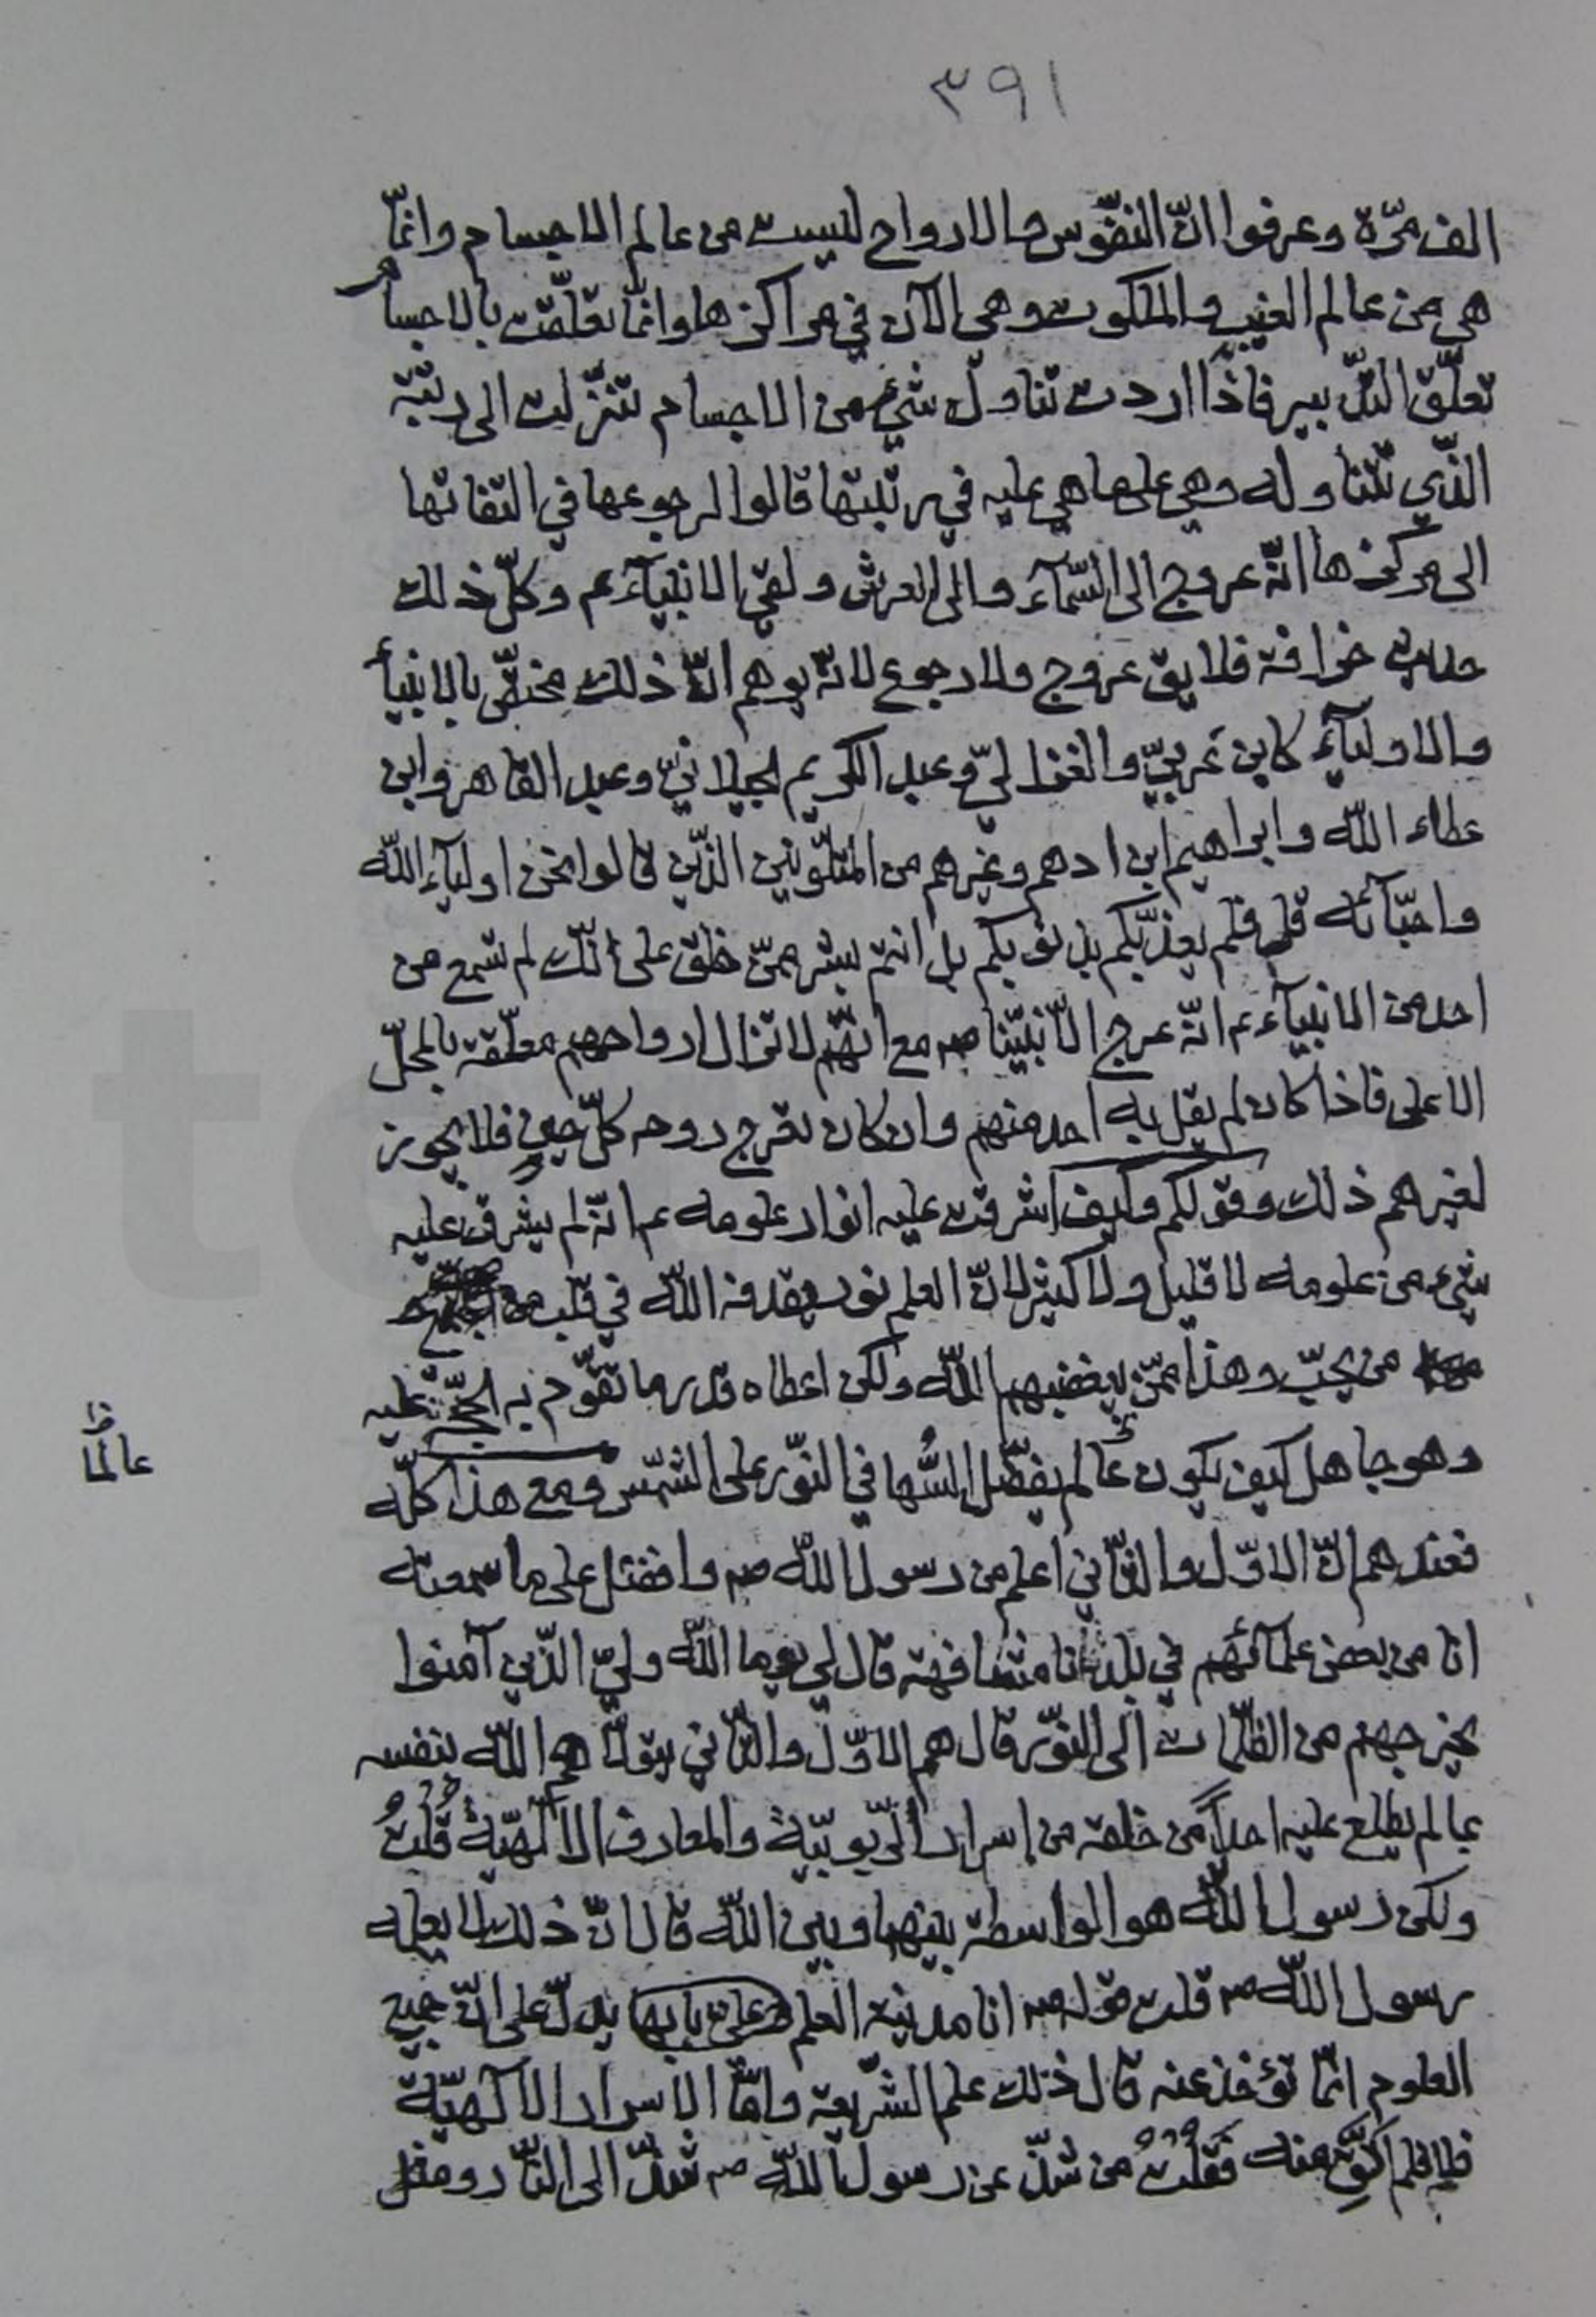 ٣٩١
الف مرّة وعرفوا انّ النفّوس والارواح ليست من عالم الاجسام وانمّا
هي من عالم الغيب والملكوت وهي الآن في مراكزها وانمّا تعلّقت بالاجسام
تعلّق التدّبير فاذا اردت تناول شيء من الاجسام تنزّلت الى رتبة
الذّي تتناوله وهي على ما هي عليه في رتبتها قالوا لرجوعها في التفاتها
الى مركزها انّه عروج الى السّمآء والى العرش ولقي الانبيآء عم وكلّ ذلك
حديث خرافة فلا يق عروج ولا رجوع لانّه يوهم انّ ذلك مختصّ بالانبيآء
والاوليآء كابن عربيّ والغزاليّ وعبد الكريم الجيلانيّ وعبد القاهر وابن
عطاء اللّه وابراهيم ابن ادهم وغيرهم من المتلوّنين الذّين قالوا نحن اوليآء اللّه
واحبّآئه قل فلم يعذّبكم بذنوبكم بل انتم بشر ممّن خلق على انّك لم تسمع من
احد من الانبيآء عم انّه عرج الّا نبيّنا صه مع انّهم لا تزال ارواحهم معلّقة بالمحلّ
الاعلى فاذا كان لم يقل به احد منهم وان كان تعرج روحه كلّ حين فلا يجوز
لغيرهم ذلك وقولكم وكيف اشرقت عليه انوار علومه عم انّه لم يشرق عليه
شيء من علومه لا قليل ولا كثير لانّ العلم نور يقذفه اللّه في قلب
من يحبّ وهذا ممّن يبغضهم اللّه ولكن اعطاه قدر ما تقوّم به الحجّة عليه
وهو جاهل كيف يكون عالم يفضّل السُّها في النوّر على الشمّس ومع هذا كلّه
عالمًا خ
فعندهم انّ الاوّل والثاّني اعلم من رسول اللّه صه وافضل على ما سمعته
انا من بعض علمآئهم في بلدنا مشافهة قال لي يوما اللّه وليّ الذّين آمنوا
يخرجهم من الظلّمات الى النوّر قال هم الاوّل والثاّني يتولّاهم اللّه بنفسه
بما لم يطلع عليه احداً من خلقه من اسرار الرّبوبيّة والمعارف الالٓهيّة قُلْتُ
ولكن رسول اللّه هو الواسطة بينهما وبين اللّه قال انّ ذلك لا يعلمه
رسول اللّه صه قلت قوله صه انا مدينة العلم وعليّ بابها يدلّ على انّ جميع
العلوم انمّا تؤخذ عنه قال ذلك علم الشرّيعة وامّا الاسرار الالٓهيّة
فلا فلم اتّق منه فَقُلْتُ من شذّ عن رسول اللّه صه شذّ الى الناّر ومثل